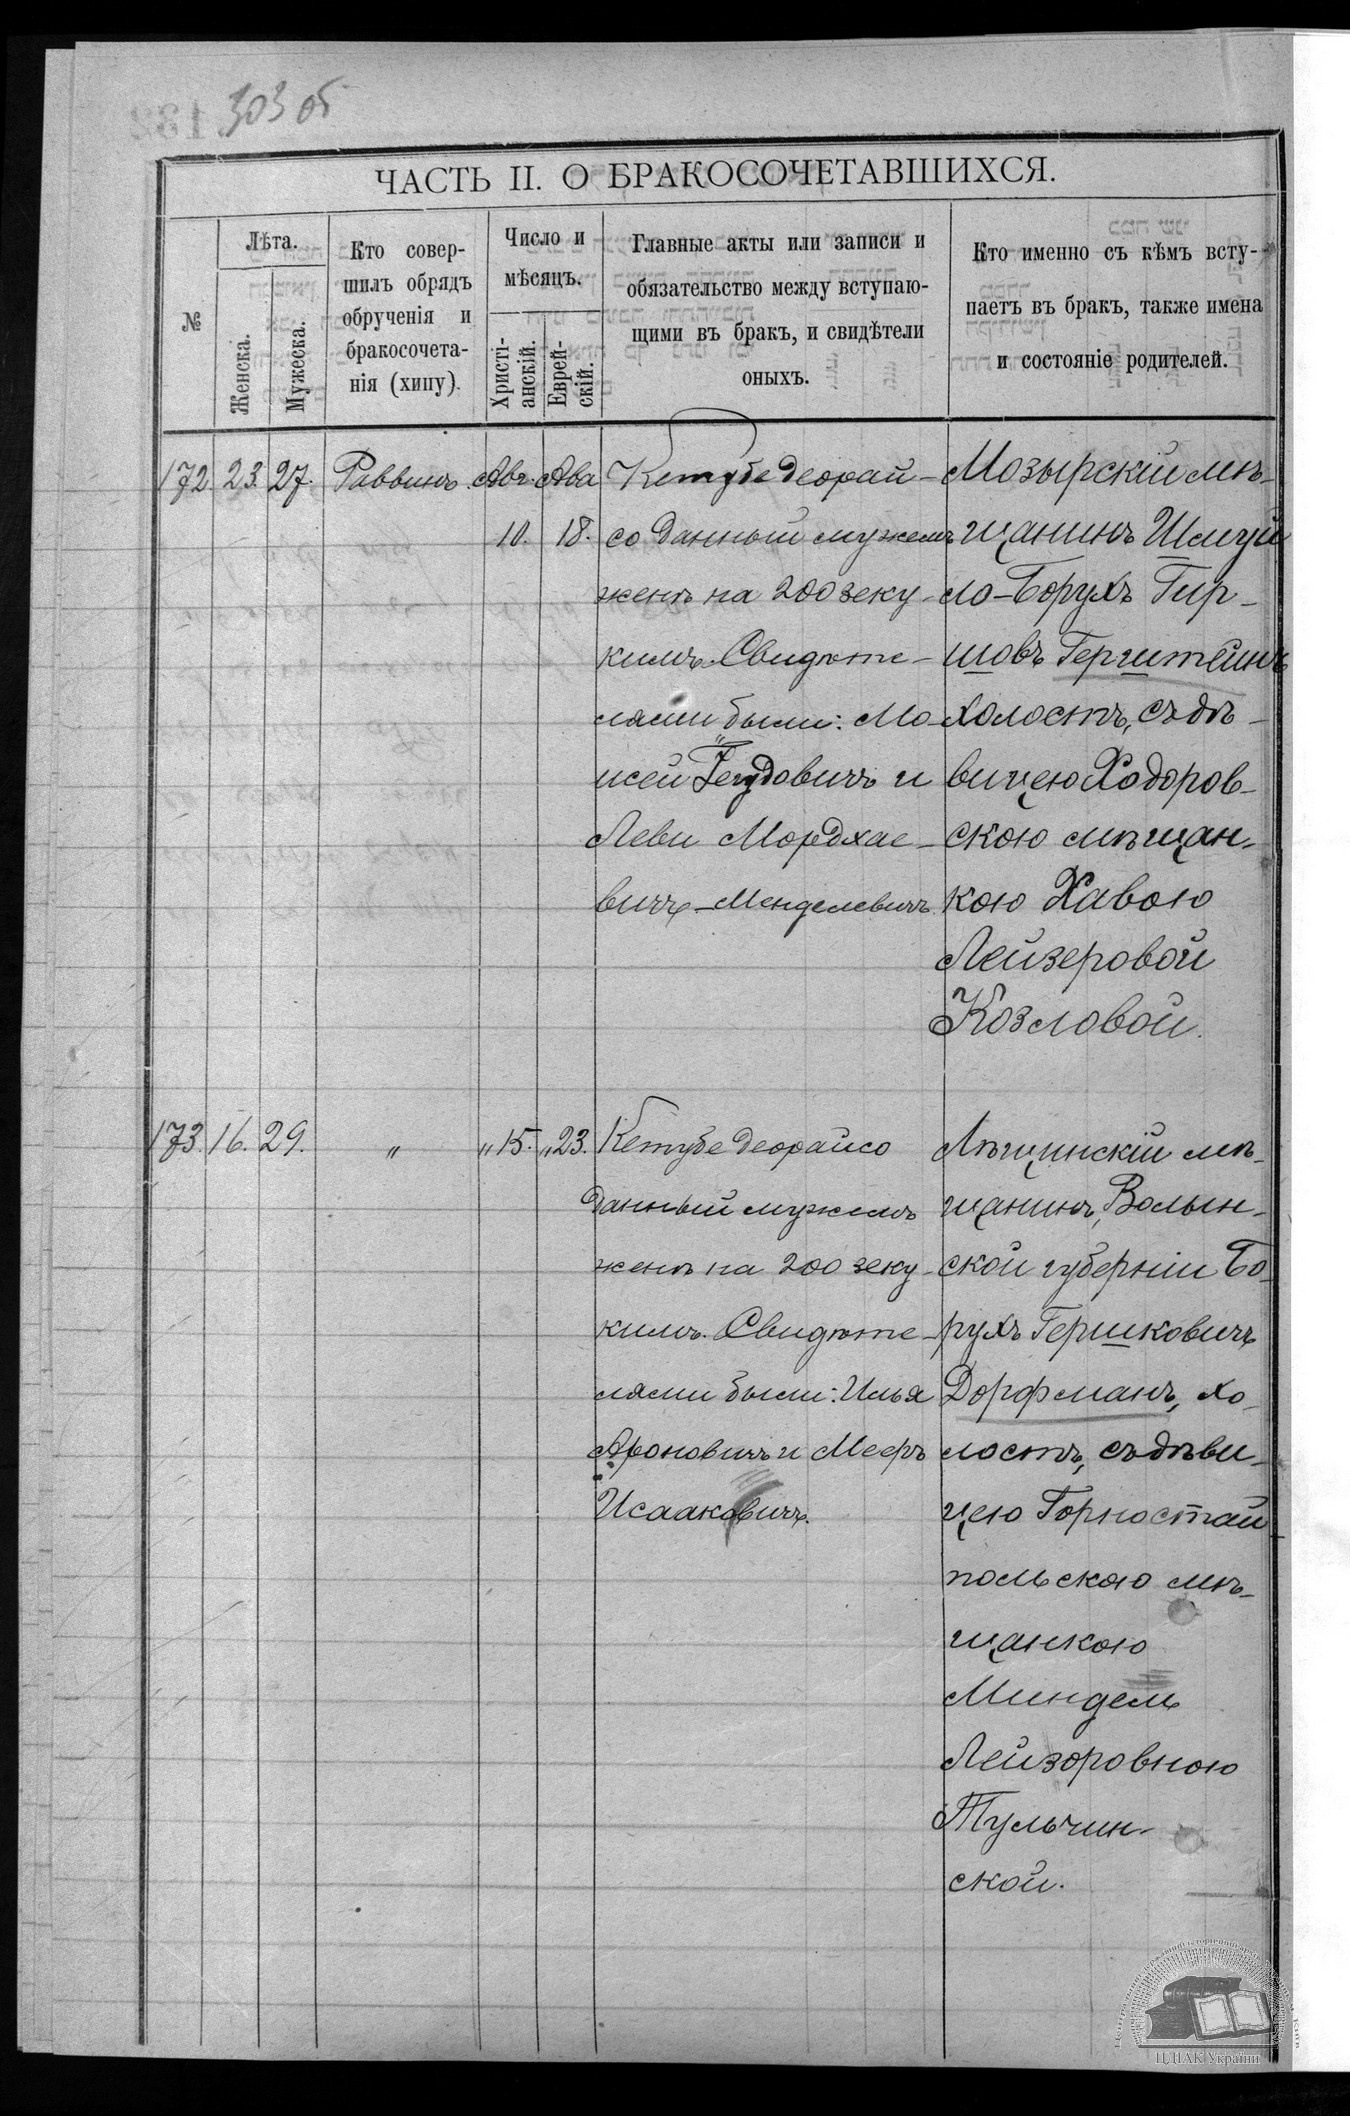 303 об
ЧАСТЬ II. О БРАКОСОЧЕТАВШИХСЯ.
№
Лѣта.
Женска.
Мужеска.
Кто совер-
шилъ обрядъ
обрученія и
бракосочета-
нія (хипу).
Число и
мѣсяцъ.
Христі-
анскій.
Еврей-
скій.
Главные акты или записи и
обязательство между вступаю-
щими въ бракъ, и свидѣтели
оныхъ.
Кто именно съ кѣмъ всту-
паетъ въ бракъ, также имена
и состояніе родителей.
172. 23. 27. Раввинъ. Авг. Ава
10. 18.
Кетубе деорай-
со данный мужемъ
женѣ на 200 зеку-
кимъ. Свидѣте-
лями были: Мо-
исей Гегудовичъ и
Леви Мордхае-
вичъ-Менделевичъ.
Мозырскій мѣ-
щанинъ Шмуй
ло-Борухъ Гир-
шовъ Герштейнъ
холостъ, съ дѣ-
вицею Ходоров-
скою мѣщан-
кою Хавою
Лейзеровой
Козловой.
173. 16. 29. " " 15. " 23.
Кетубе деорайсо
данный мужемъ
женѣ на 200 зеку-
кимъ. Свидѣте-
лями были: Илья
Ароновичъ и Мееръ
Исааковичъ.
Лѣщинскій мѣ-
щанинъ, Волын-
ской губерніи Бо-
рухъ Гершковичъ
Дорфманъ, хо-
лостъ, съ дѣви-
цею Горностай
польскою мѣ-
щанкою
Миндель
Лейзоровною
Тульчин-
ской.
ЦДІАК України